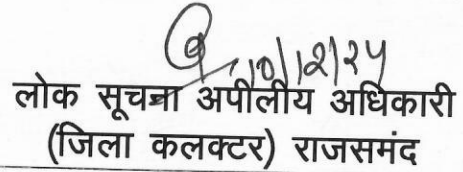 10/12/24
लोक सूचना अपीलीय अधिकारी
(जिला कलक्टर) राजसमंद